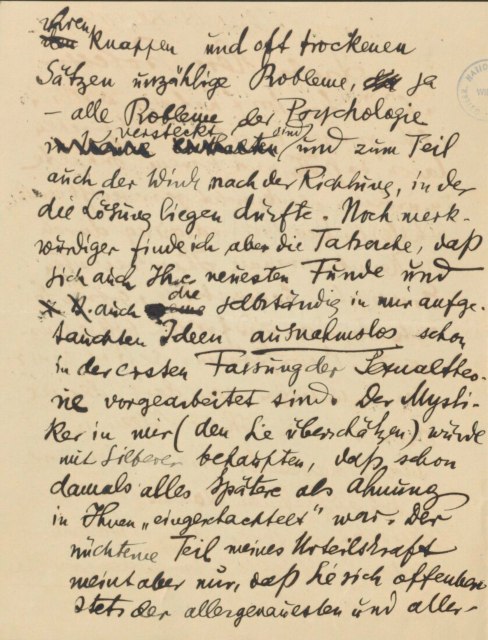 ihren
knappen und oft trockenen
Sätzen unzählige Probleme, ja
– alle Probleme der Psychologie
versteckt sind
und zum Teil
auch der Wink nach der Richtung, in der
die Lösung liegen dürfte. Noch merk-
würdiger finde ich aber die Tatsache, daß
sich auch Ihre neuesten Funde und
z. T. auch die selbständig in mir aufge-
tauchten Ideen ausnahmslos schon
in der ersten Fassung der Sexualtheo-
rie vorgearbeitet sind. Der Mysti-
ker in mir (den Sie überschätzen) würde
mit Silberer behaupten, daß schon
damals alles Spätere als Ahnung
in Ihnen „eingeschachtelt" war. Der
nüchterne Teil meines Urteilskraft
meint aber nur, daß Sie sich offenbar
stets der allergenauesten und aller-